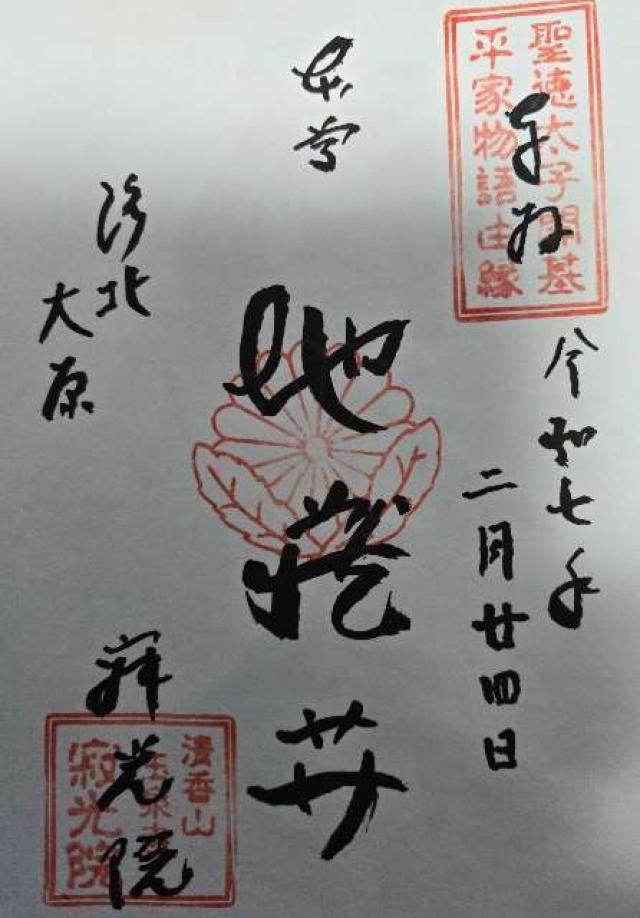 聖徳太子開基
平家物語由縁
奉拝
令和七年
二月廿四日
本尊
地蔵𦬇
洛北
大原
寂光院
清香山
玉泉寺
寂光院